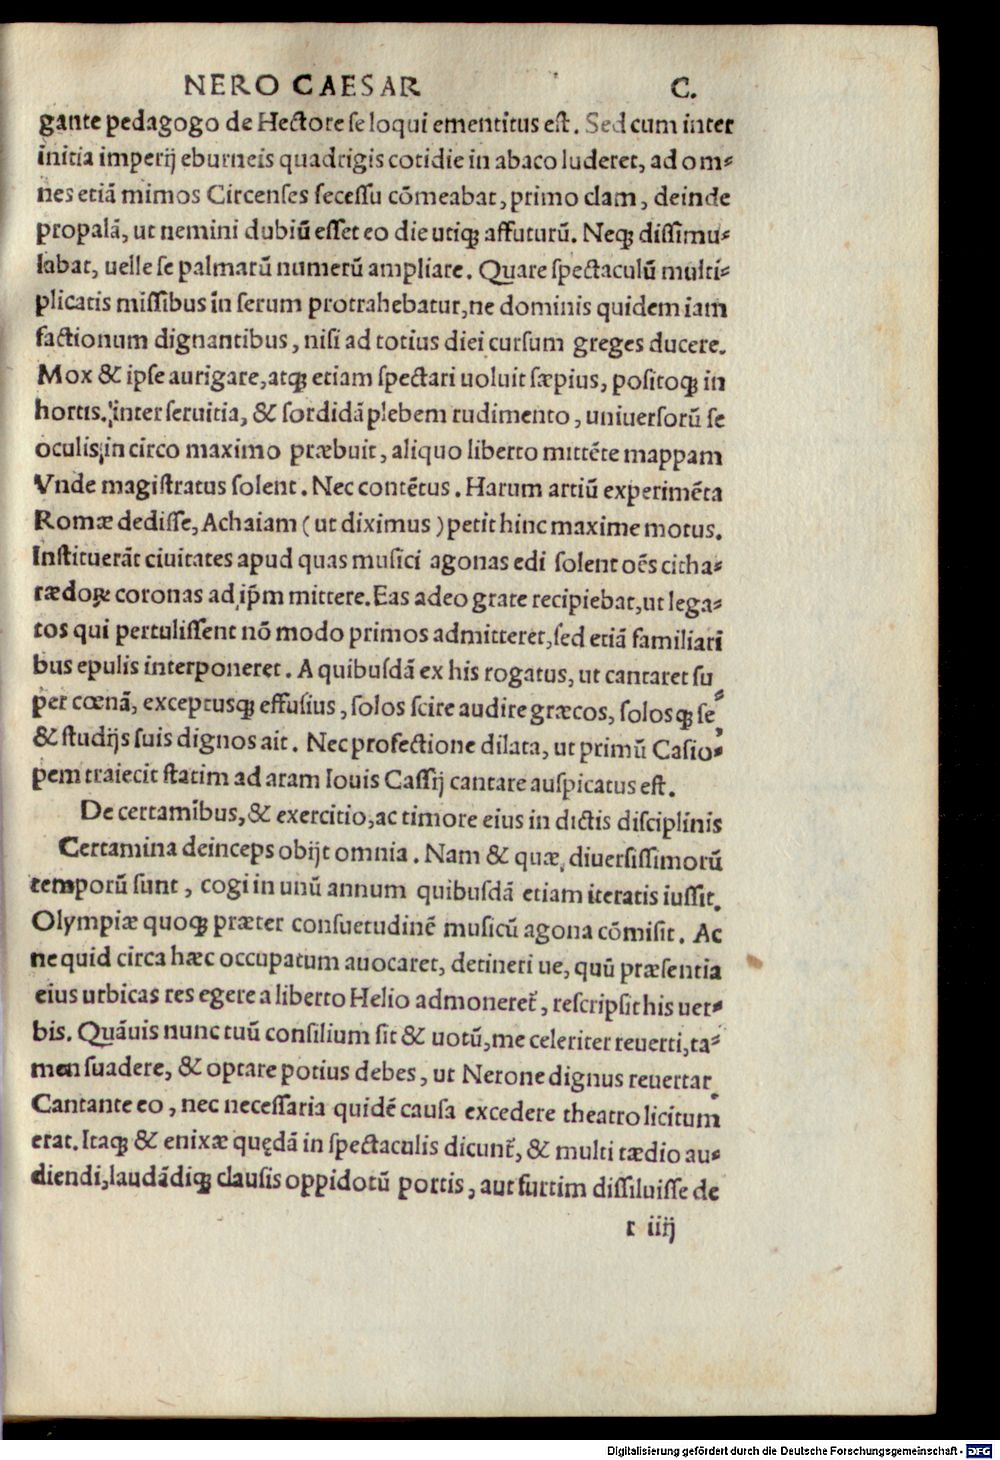 NERO CAESAR C.
gante pedagogo de Hectore se loqui ementitus est. Sed cum inter
initia imperij eburneis quadrigis cotidie in abaco luderet, ad om-
nes etiā mimos Circenses secessu cōmeabat, primo clam, deinde
propalā, ut nemini dubiū esset eo die utiqꝫ affuturū. Neqꝫ dissimu-
labat, uelle se palmarū numerū ampliare. Quare spectaculū multi-
plicatis missibus in serum protrahebatur, ne dominis quidem iam
factionum dignantibus, nisi ad totius diei cursum greges ducere.
Mox & ipse aurigare, atqꝫ etiam spectari uoluit sæpius, positoqꝫ in
hortis. inter seruitia, & sordidā plebem rudimento, uniuersorū se
oculis in circo maximo præbuit, aliquo liberto mittēte mappam
Vnde magistratus solent. Nec contētus. Harum artiū experimēta
Romæ dedisse, Achaiam (ut diximus) petit hinc maxime motus.
Instituerāt ciuitates apud quas musici agonas edi solent oēs citha-
rædoꝝ coronas ad ip̄m mittere. Eas adeo grate recipiebat, ut lega-
tos qui pertulissent nō modo primos admitteret, sed etiā familiari
bus epulis interponeret. A quibusdā ex his rogatus, ut cantaret su
per cœnā, exceptusqꝫ effusius, solos scire audire græcos, solosqꝫ se,
& studijs suis dignos ait. Nec profectione dilata, ut primū Casio-
pem traiecit statim ad aram Iouis Cassij cantare auspicatus est.
De certamībus, & exercitio, ac timore eius in dictis disciplinis
Certamina deinceps obijt omnia. Nam & quæ diuersissimorū
temporū sunt, cogi in unū annum quibusdā etiam iteratis iussit.
Olympiæ quoqꝫ præter consuetudinē musicū agona cōmisit. Ac
ne quid circa hæc occupatum auocaret, detineri ue, quū præsentia
eius urbicas res egere a liberto Helio admoneret̃, rescripsit his uer-
bis. Quāuis nunc tuū consilium sit & uotū, me celeriter reuerti, ta-
men suadere, & optare potius debes, ut Nerone dignus reuertar.
Cantante eo, nec necessaria quidē causa excedere theatro licitum
erat. Itaqꝫ & enixæ quędā in spectaculis dicunt̃, & multi tædio au-
diendi, laudādiqꝫ clausis oppidorū portis, aut furtim dissiluisse de
r iiij
Digitalisierung gefördert durch die Deutsche Forschungsgemeinschaft - DFG